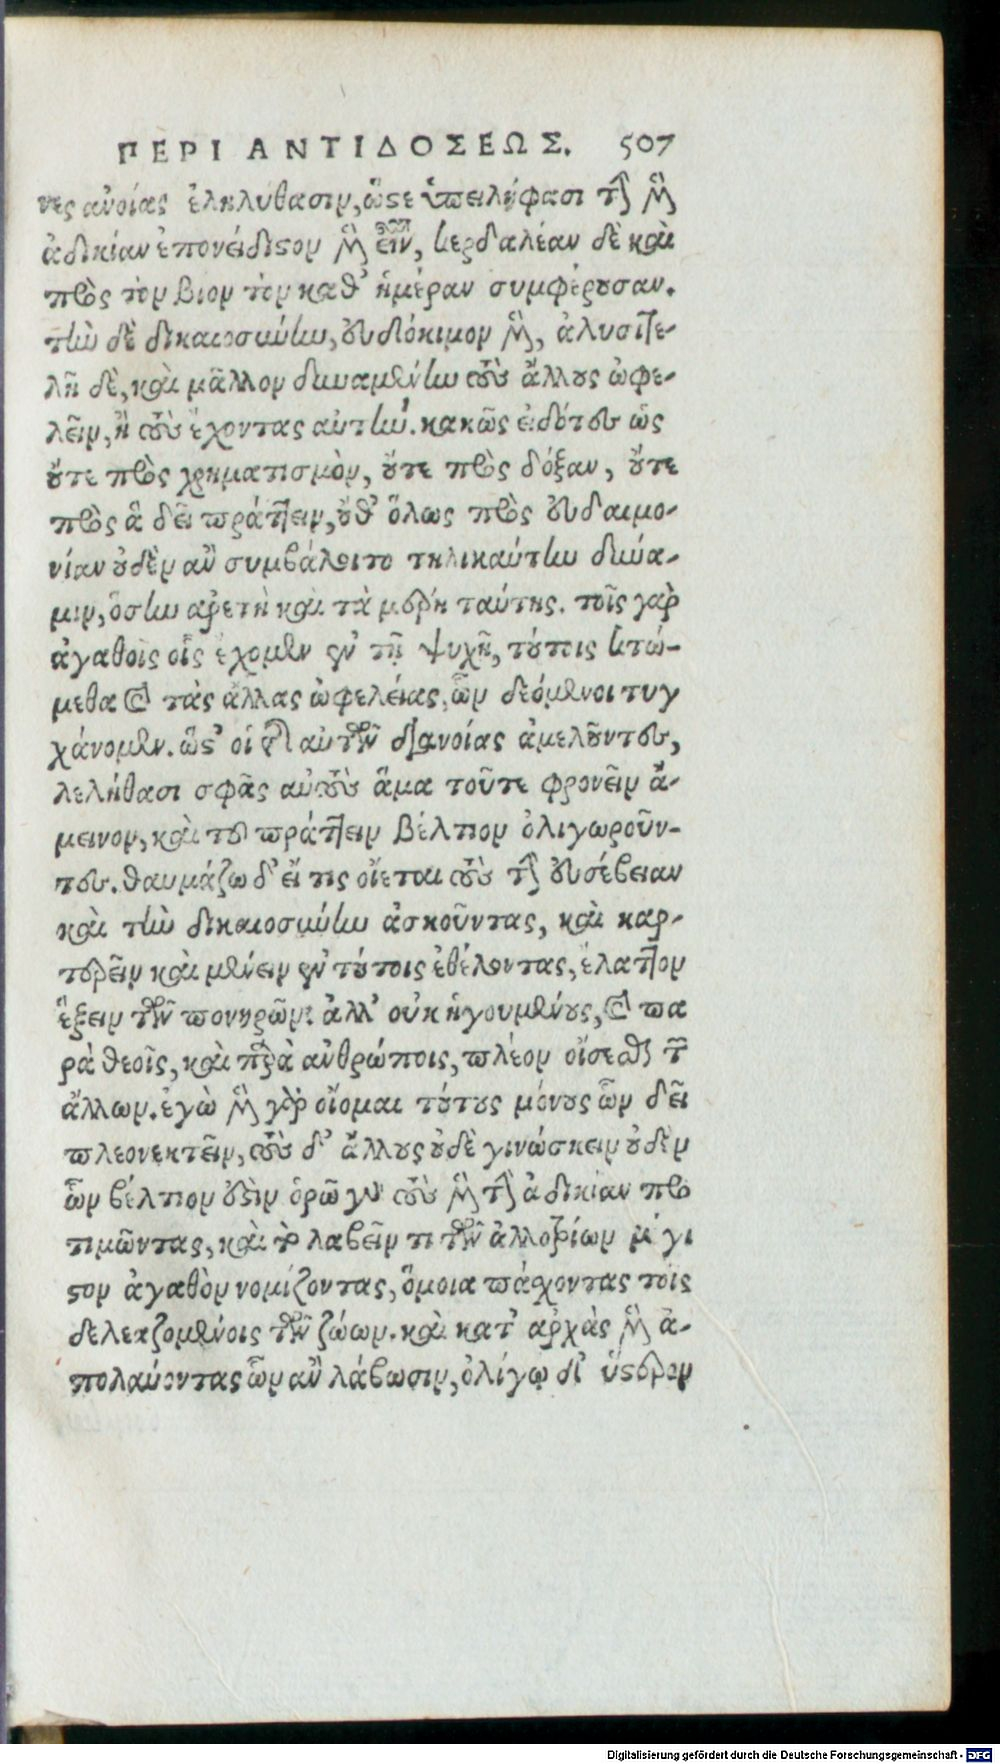 ΠΕΡΙ ΑΝΤΙΔΟΣΕΩΣ. 507
νες ἀνοίας ἐληλύθασιν, ὥστε ὑπειλήφασι τὴν μὲν
ἀδικίαν ἐπονείδιστον μὲν εἶναι, κερδαλέαν δὲ καὶ
πρὸς τὸν βιον τὸν καθ' ἡμέραν συμφέρουσαν.
τὴν δὲ δικαιοσύνην, εὐδόκιμον μὲν, ἀλυσιτε-
λῆ δὲ, καὶ μᾶλλον δυναμένην τοὺς ἄλλους ὠφε-
λεῖν, ἢ τοὺς ἔχοντας αὐτήν. κακῶς εἰδότες ὡς
οὔτε πρὸς χρηματισμὸν, οὔτε πρὸς δόξαν, οὔτε
πρὸς ἃ δεῖ πράττειν, οὔθ' ὅλως πρὸς εὐδαιμο-
νίαν οὐδὲν ἂν συμβάλοιτο τηλικαύτην δύνα-
μιν, ὅσην ἀρετὴ καὶ τὰ μέρη ταύτης. τοῖς γὰρ
ἀγαθοῖς οἷς ἔχομεν ἐν τῇ ψυχῇ, τούτοις κτώ-
μεθα καὶ τὰς ἄλλας ὠφελείας, ὧν δεόμενοι τυγ
χάνομεν. ὥστ' οἱ τῆς αὑτῶν διανοίας ἀμελοῦντες,
λελήθασι σφᾶς αὐτοὺς ἅμα τοῦτε φρονεῖν ἄ-
μεινον, καὶ τοῦ πράττειν βέλτιον ὀλιγωροῦν-
τες. θαυμάζω δ' εἴ τις οἴεται τοὺς τὴν εὐσέβειαν
καὶ τὴν δικαιοσύνην ἀσκοῦντας, καὶ καρ-
τερεῖν καὶ μένειν ἐν τούτοις ἐθέλοντας, ἔλαττον
ἕξειν τῶν πονηρῶν· ἀλλ' οὐκ ἡγουμένους, καὶ πα
ρὰ θεοῖς, καὶ παρὰ ἀνθρώποις, πλέον οἴσεσθαι τῶν
ἄλλων. ἐγὼ μὲν γὰρ οἴομαι τούτους μόνους ὧν δεῖ
πλεονεκτεῖν, τοὺς δ' ἄλλους οὐδὲ γινώσκειν οὐδὲν
ὧν βέλτιον οὐσιν ὁρῶ γὰρ τοὺς μὲν τὴν ἀδικίαν προ
τιμῶντας, καὶ τὸ λαβεῖν τι τῶν ἀλλοτρίων μέγι
στον ἀγαθὸν νομίζοντας, ὅμοια πάσχοντας τοῖς
δελεαζομένοις τῶν ζώων. καὶ κατ' ἀρχὰς μὲν ἀ-
πολαύοντας ὧν ἂν λάβωσιν, ὀλίγῳ δ' ὕστερον
Digitalisierung gefördert durch die Deutsche Forschungsgemeinschaft - DFG